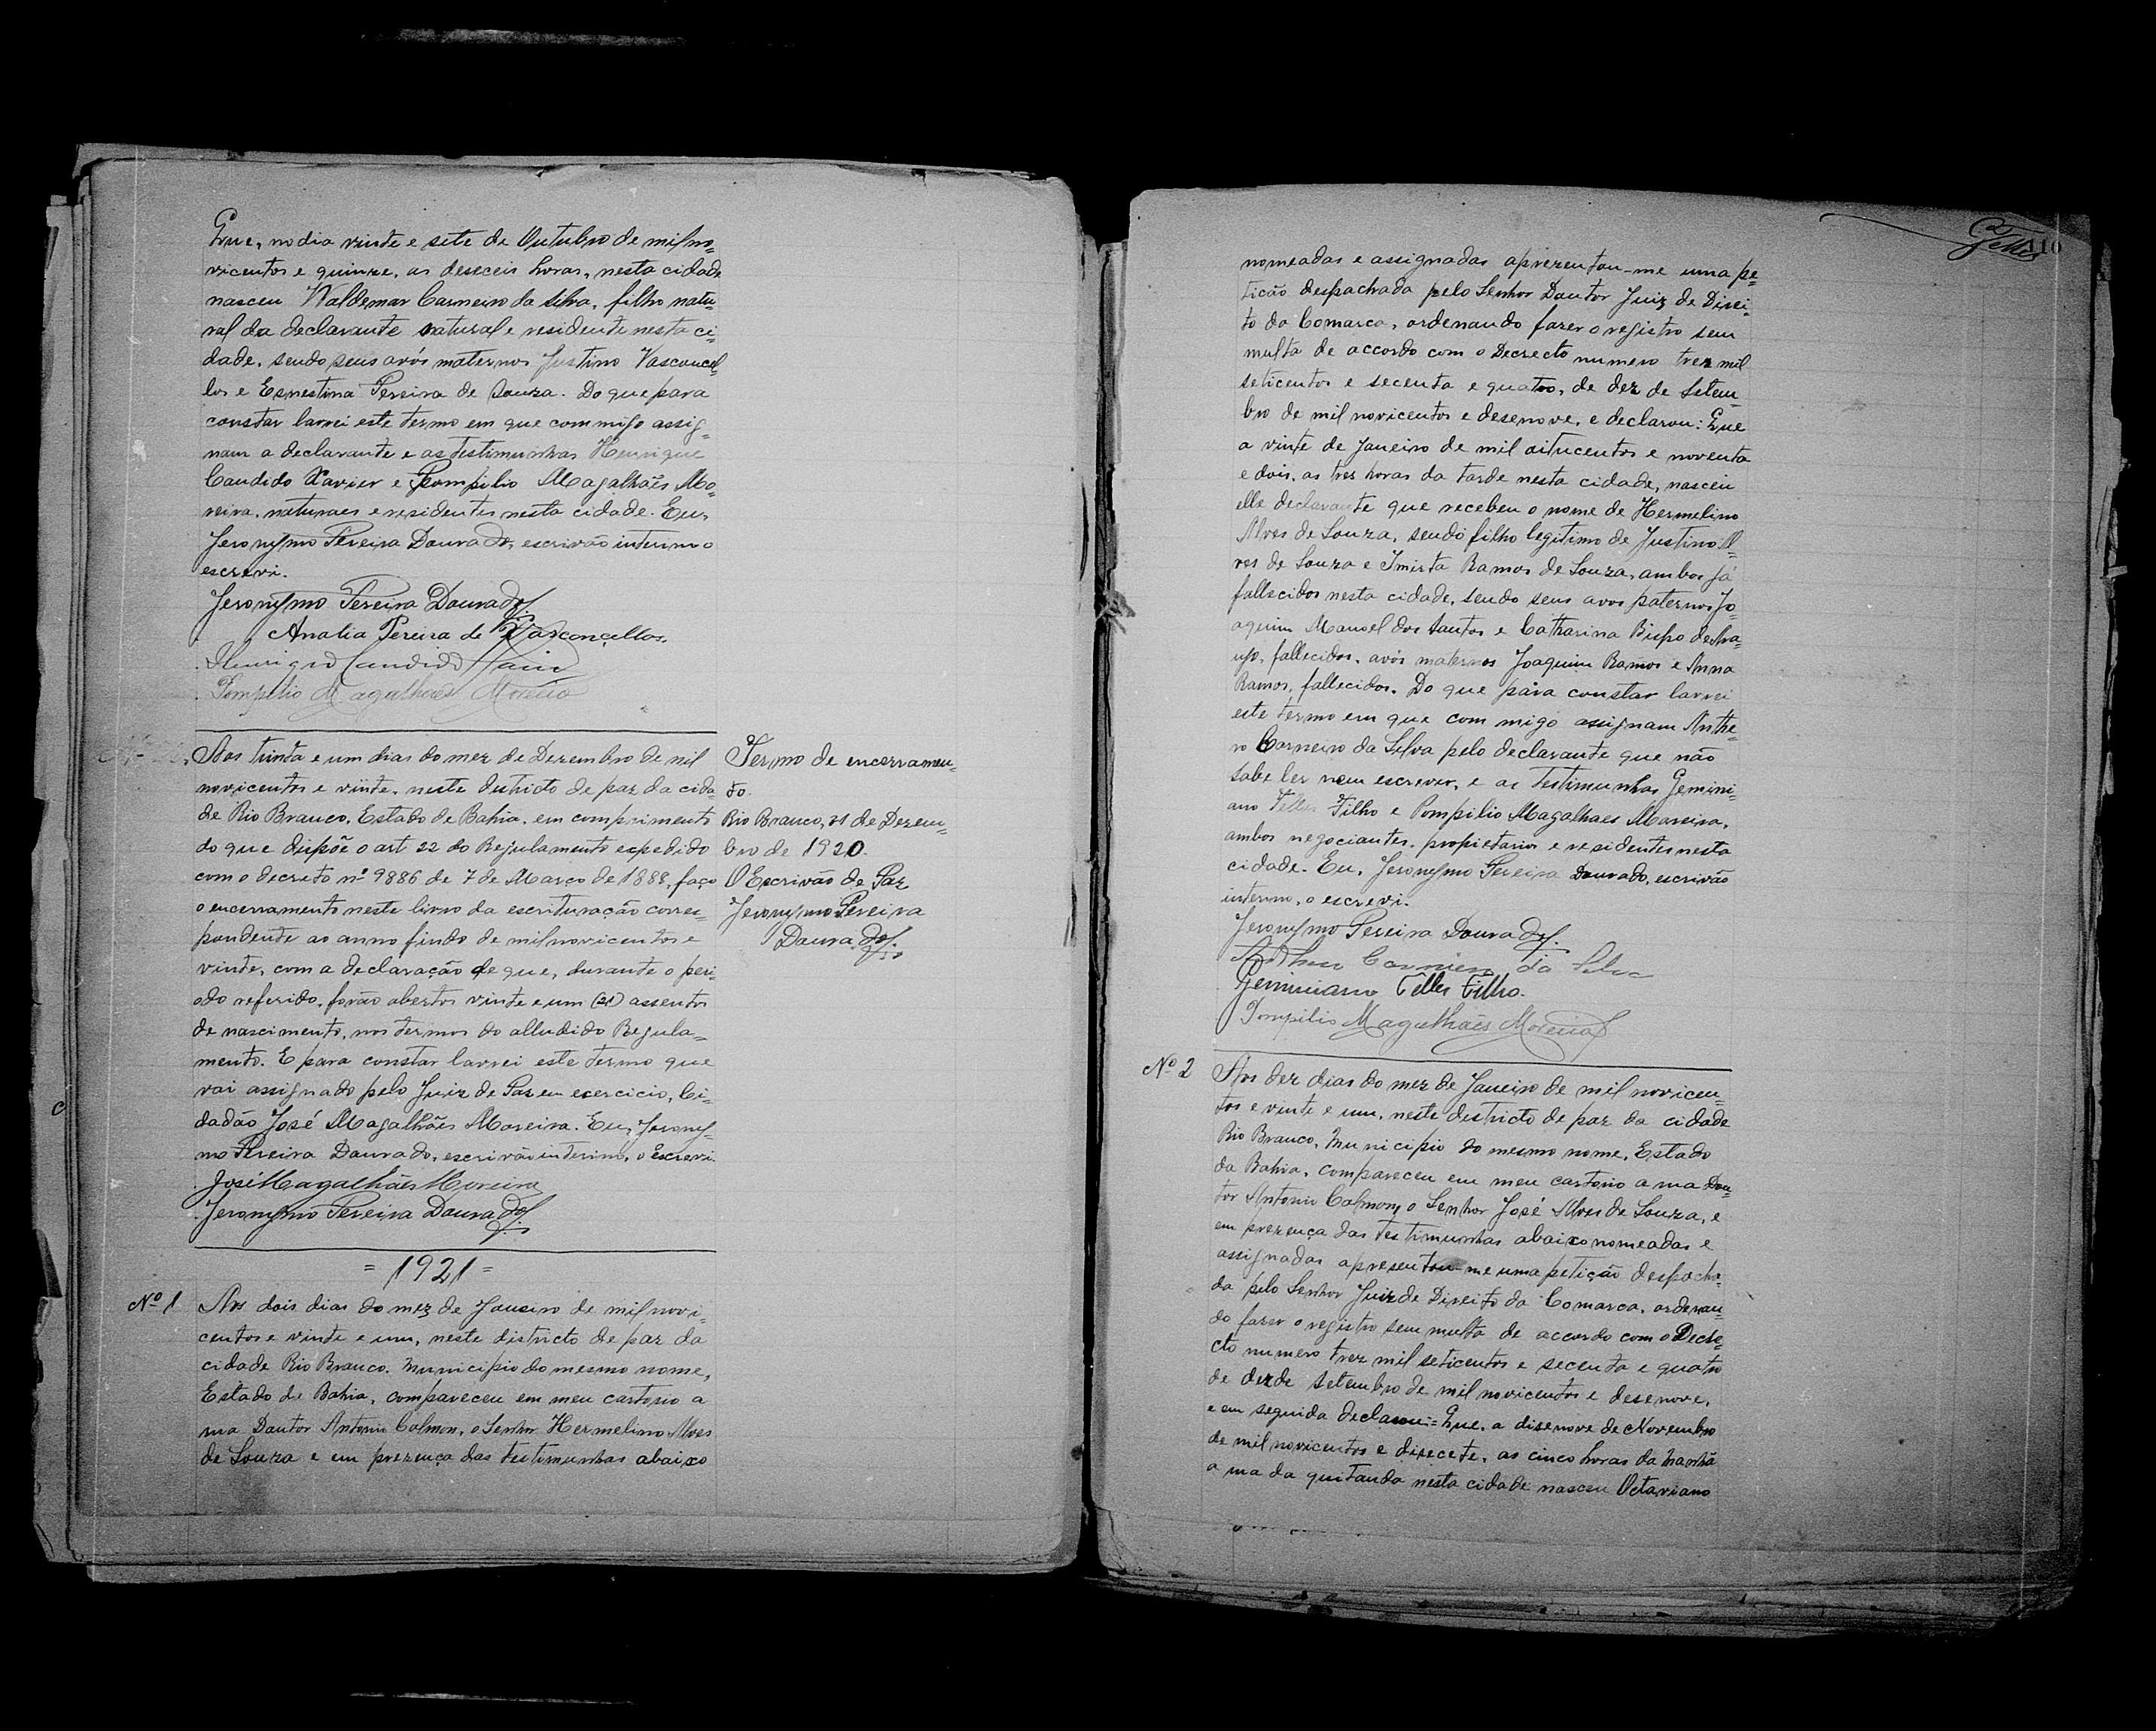 Que, no dia vinte e sete de Outubro de mil no=
vicentos e quinze, as deseceis horas, nesta cidade
nasceu Waldemar Carneiro da Silva, filho natu=
ral da declarante natural e residente nesta ci=
dade, sendo seus avós maternos Justino Vasconcel=
los e Ernestina Pereira de Souza. Do que para
constar lavrei este termo em que commigo assig=
nam a declarante e as testimunhas Henrique
Candido Xavier e Pompilio Magalhães Mo=
reira, naturaes e residentes nesta cidade. Eu,
Jeronymo Pereira Dourado, escrivão interino o
escrevi.
Jeronymo Pereira Dourado
Analia Pereira de Vasconcellos.
Henrique Candido
Pompilio Magalhães Moreira
Aos trinta e um dias do mez de Dezembro de mil
novicentos e vinte, neste districto de paz da cida
de Rio Branco, Estado de Bahia, em comprimento
do que dispõe o art 22 do Regulamento expedido
com o decreto nº 9886 de 7 de Março de 1888, faço
o encerramento neste livro da escrituração corres=
pondente ao anno findo de mil novicentos e
vinte, com a declaração de que, durante o peri=
odo referido, forão abertos vinte e um (21) assentos
de nascimento, nos termos do alludido Regula=
mento. E para constar lavrei este termo que
vai assignado pelo Juiz de Paz em exercicio, Ci=
dadão José Magalhães Moreira. Eu, Jerony=
mo Pereira Dourado, escrivão interino, o escrevi.
José Magalhães Moreira
Jeronymo Pereira Dourado
Termo de encerramen=
to.
Rio Branco, 31 de Dezem=
bro de 1920.
O Escrivão de Paz
Jeronymo Pereira
Dourado
= 1921 =
Nº 1 Aos dois dias do mez de Janeiro de mil novi=
centos e vinte e um, neste districto de paz da
cidade Rio Branco, Municipio do mesmo nome,
Estado de Bahia, compareceu em meu cartorio a
rua Doutor Antonio Calmon, o Senhor Hermelino Alves
de Souza e em prezença das testimunhas abaixo
Telles 110
nomeadas e assignadas aprezentou-me uma pe=
tição despachada pelo Senhor Doutor Juiz de Direi=
to da Comarca, ordenando fazer o registro sem
multa de accordo com o Decrecto numero trez mil
seticentos e secenta e quatro, de dez de Setem=
bro de mil novicentos e desenove, e declarou: Que
a vinte de Janeiro de mil oitucentos e noventa
e dois, as tres horas da tarde nesta cidade, nasceu
elle declarante que recebeu o nome de Hermelino
Alves de Souza, sendo filho legitimo de Justino Al=
ves de Souza e Ramos de Souza, ambos já
fallecidos nesta cidade, sendo seus avos paternos Jo
aquim Manoel dos Santos e Catharina Bispo de Ara=
ujo, fallecidos, avós maternos Joaquim Ramos e Anna
Ramos, fallecidos. Do que pára constar lavrei
este termo em que com migo assignam Anthe=
ro Carneiro da Silva pelo declarante que não
sabe ler nem escrever, e as testimunhas Gemini=
ano Telles Filho e Pompilio Magalhaes Moreira,
ambos negociantes, propietarios e residentes nesta
cidade. Eu, Jeronymo Pereira Dourado, escrivão
interino, o escrevi.
Jeronymo Pereira Dourado
Anthero Carneiro da Silva
Geminiano Telles Filho.
Pompilio Magalhães Moreira
Nº 2 Aos dez dias do mez de Janeiro de mil novicen=
tos e vinte e um, neste districto de paz da cidade
Rio Branco, Municipio do mesmo nome, Estado
da Bahia, compareceu em meu cartorio a rua Dou=
tor Antonio Calmon, o Senhor José Alves de Souza, e
em prezença das testimunhas abaixo nomeadas e
assignadas apresentou-me uma petição despacha=
da pelo Senhor Juiz de Direito da Comarca, ordenan=
do fazer o registro sem multa de accordo com o Decre=
cto numero trez mil seticentos e secenta e quatro
de dez de setembro de mil novicentos e desenove,
e em seguida declarou= Que, a disenove de Novembro
de mil novicentos e disecete, as cinco horas da manhã
a rua da quitanda nesta cidade nasceu Octaviano